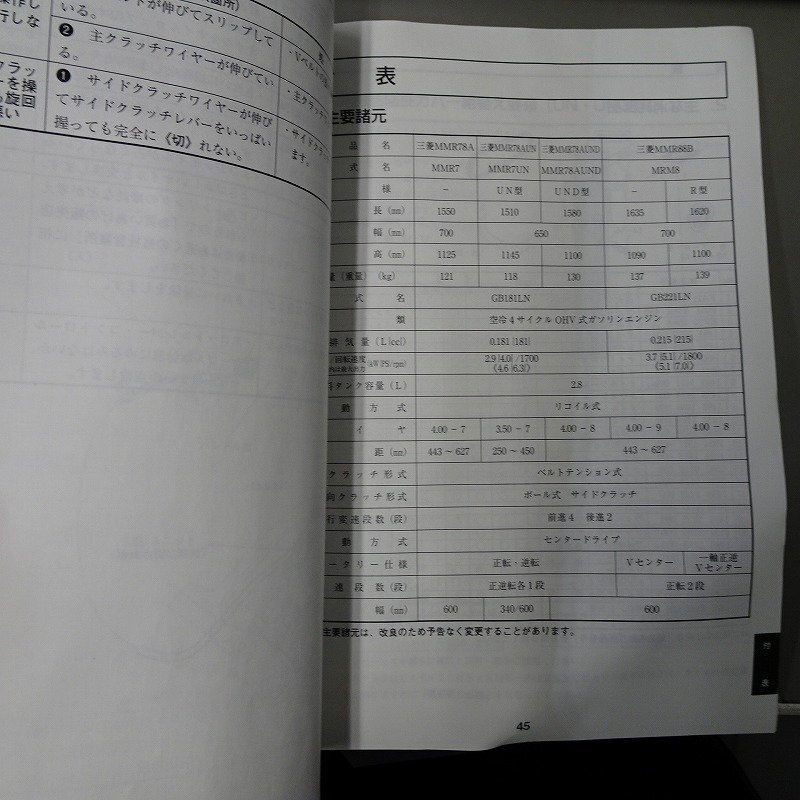 箇所)
ルトが伸びてスリップして
いる。
❷ 主クラッチワイヤーが伸びてい
る。
❶ サイドクラッチワイヤーが伸び
てサイドクラッチレバーをいっぱい
握っても完全に《切》れない。
操作し
行しな
クラッ
ーを操
も旋回
悪い
・Vベルトの
・主クラッチ
・サイドクラ
ます。
表
主要諸元
品 名 三菱MMR78A 三菱MMR78AUN 三菱MMR78AUND 三菱MMR88B
式 名 MMR7 MMR7UN MMR78AUND MRM8
様 − UN型 UND型 − R型
長(mm) 1550 1510 1580 1635 1620
幅(mm) 700 650 700
高(mm) 1125 1145 1100 1090 1100
量(重量)(kg) 121 118 130 137 139
式 名 GB181LN GB221LN
類 空冷4サイクルOHV式ガソリンエンジン
排気量(L[cc]) 0.181[181] 0.215[215]
回転速度 (kW[PS]/rpm) 2.9[4.0]/1700 3.7[5.1]/1800
内は最大出力 《4.6[6.3]》 《5.1[7.0]》
料タンク容量(L) 2.8
動方式 リコイル式
イヤ 4.00−7 3.50−7 4.00−8 4.00−9 4.00−8
距(mm) 443〜627 250〜450 443〜627
クラッチ形式 ベルトテンション式
向クラッチ形式 ボール式 サイドクラッチ
行変速段数(段) 前進4 後進2
動方式 センタードライブ
ータリー仕様 正転・逆転 Vセンター 一輪正逆
Vセンター
速段数(段) 正逆転各1段 正転2段
幅(mm) 600 340/600 600
主要諸元は、改良のため予告なく変更することがあります。
付
表
45